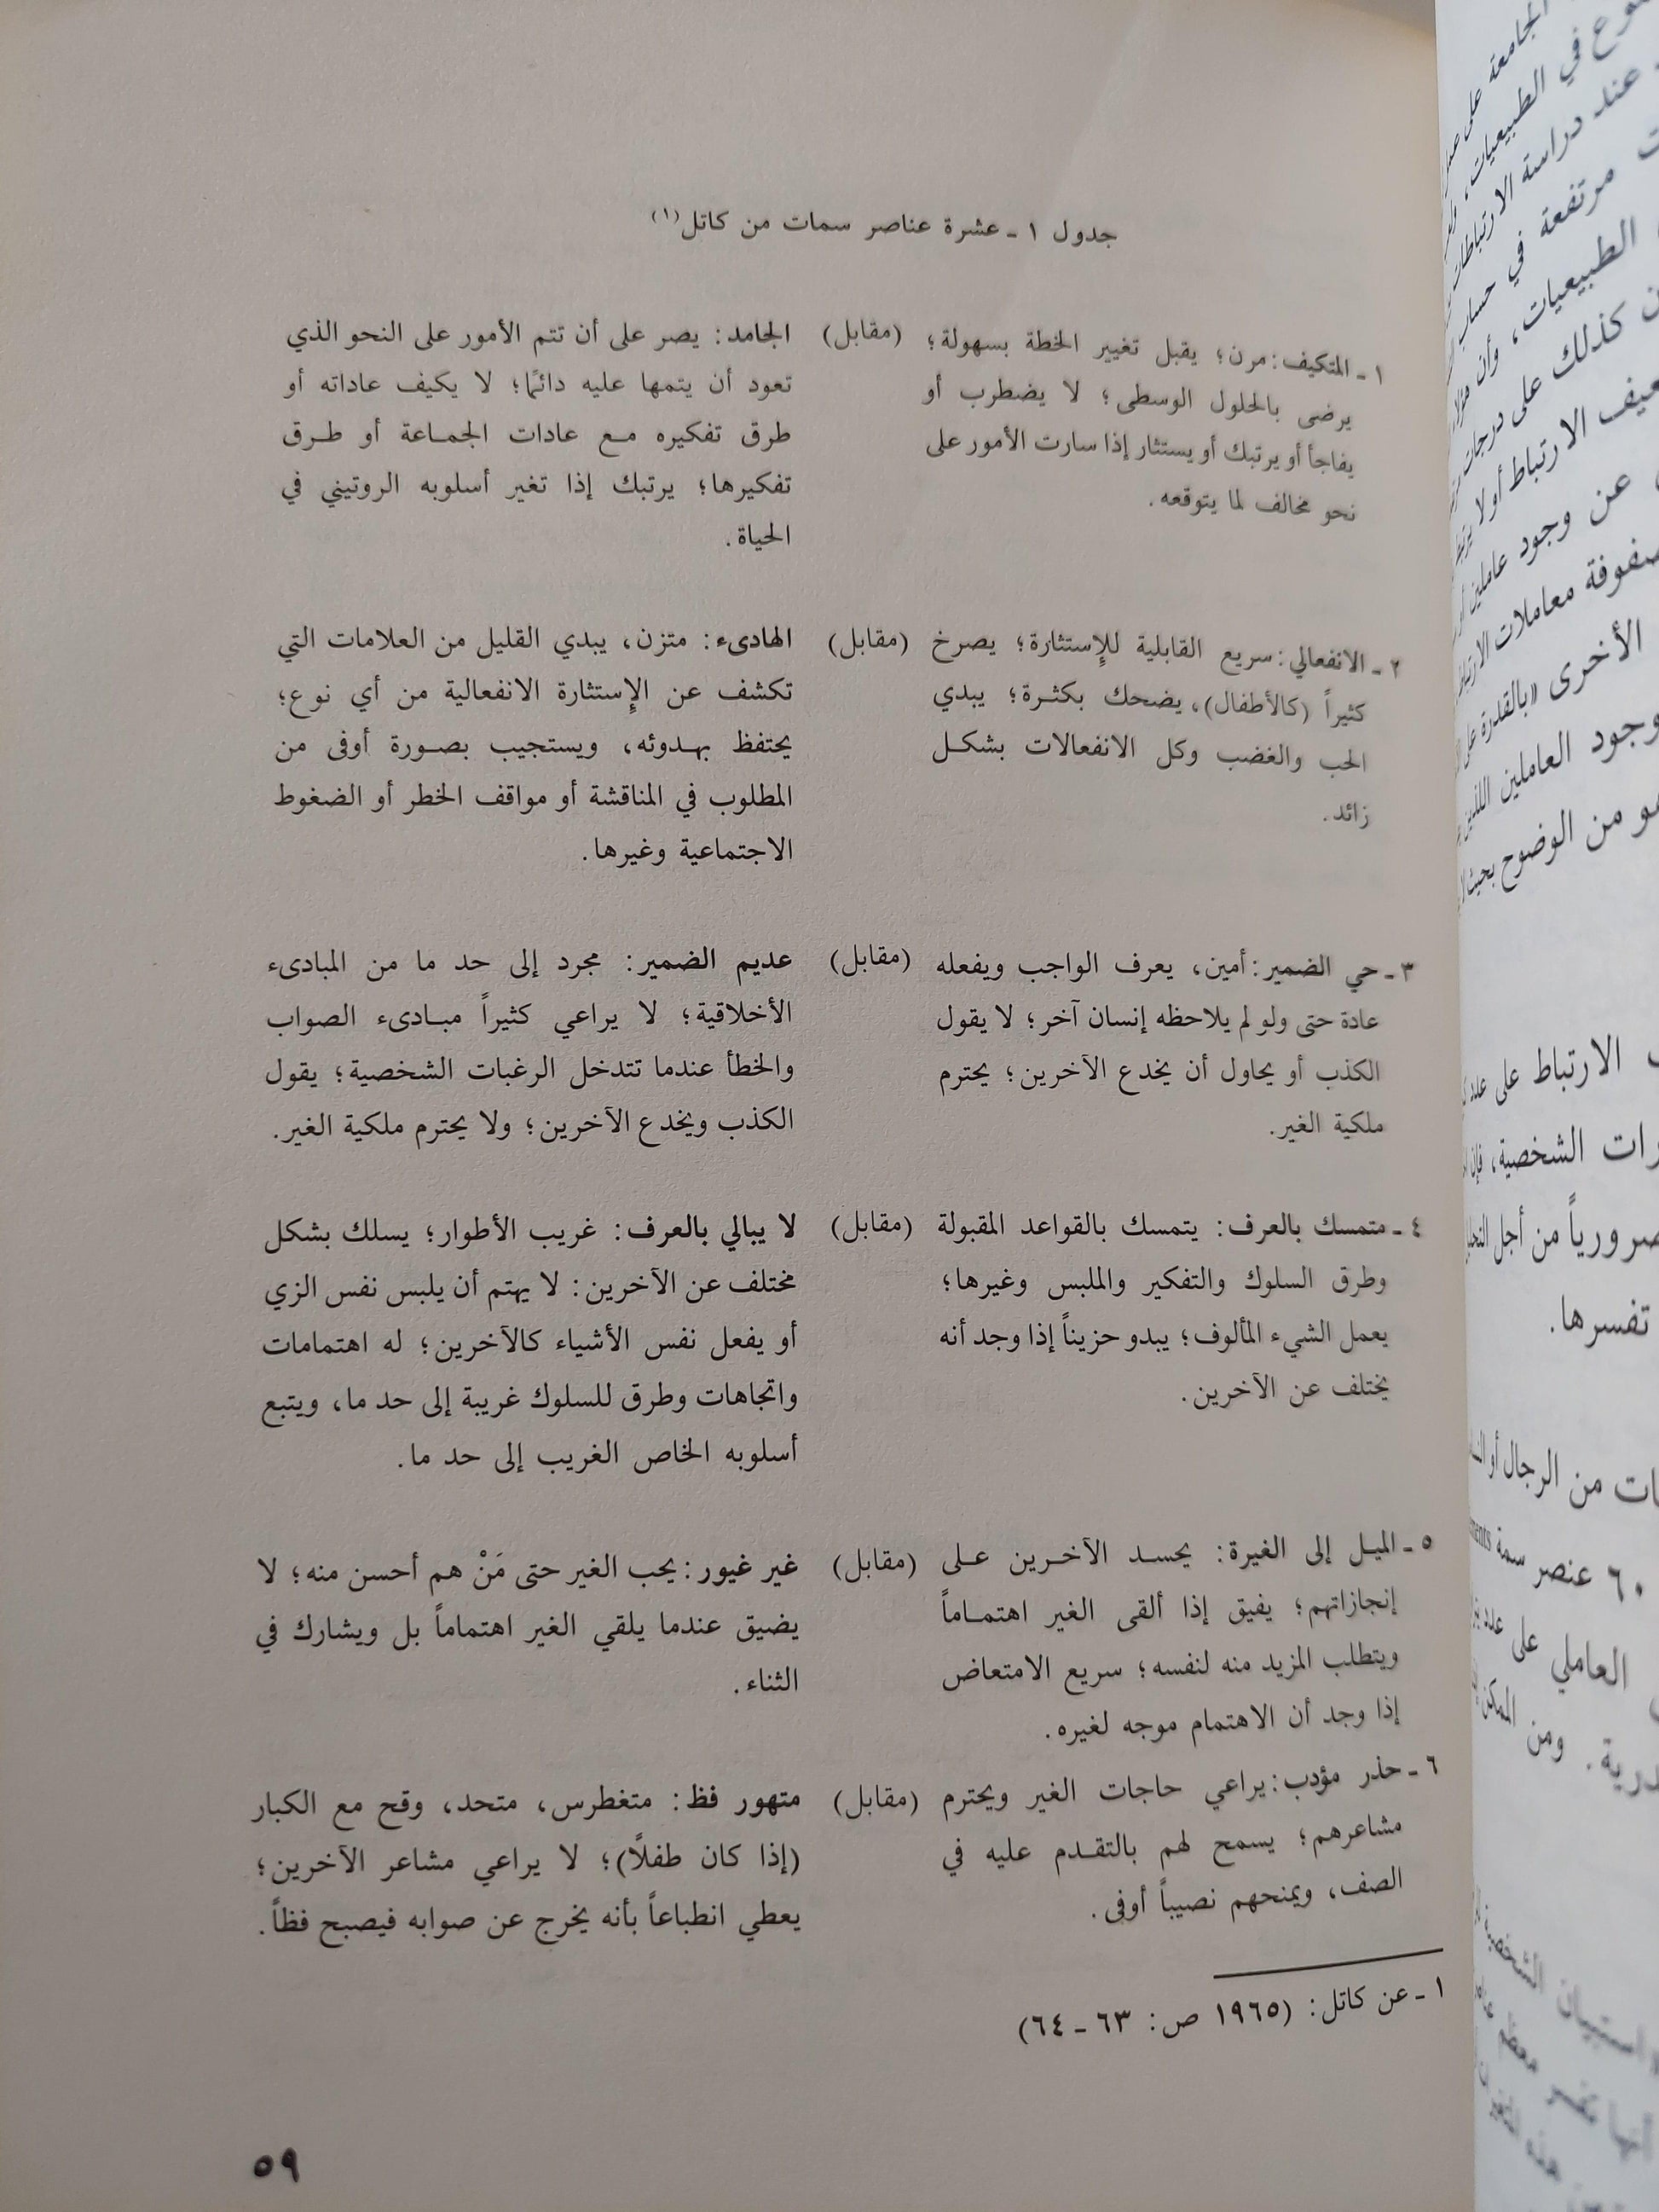 جدول ١ ـ عشرة عناصر سمات من كاتل(١)
١ ـ المتكيف: مرن؛ يقبل تغيير الخطة بسهولة؛ (مقابل)
يرضى بالحلول الوسطى؛ لا يضطرب أو
يفاجأ أو يرتبك أو يستثار إذا سارت الأمور على
نحو مخالف لما يتوقعه.
الجامد: يصر على أن تتم الأمور على النحو الذي
تعود أن يتمها عليه دائمًا؛ لا يكيف عاداته أو
طرق تفكيره مع عادات الجماعة أو طرق
تفكيرها؛ يرتبك إذا تغير أسلوبه الروتيني في
الحياة.
٢ ـ الانفعالي: سريع القابلية للإستثارة؛ يصرخ (مقابل)
كثيراً (كالأطفال)، يضحك بكثرة؛ يبدي
الحب والغضب وكل الانفعالات بشكل
زائد.
الهادىء: متزن، يبدي القليل من العلامات التي
تكشف عن الإستثارة الانفعالية من أي نوع؛
يحتفظ بهدوئه، ويستجيب بصورة أوفى من
المطلوب في المناقشة أو مواقف الخطر أو الضغوط
الاجتماعية وغيرها.
٣ ـ حي الضمير: أمين، يعرف الواجب ويفعله (مقابل)
عادة حتى ولو لم يلاحظه إنسان آخر؛ لا يقول
الكذب أو يحاول أن يخدع الآخرين؛ يحترم
ملكية الغير.
عديم الضمير: مجرد إلى حد ما من المبادىء
الأخلاقية؛ لا يراعي كثيراً مبادىء الصواب
والخطأ عندما تتدخل الرغبات الشخصية؛ يقول
الكذب ويخدع الآخرين؛ ولا يحترم ملكية الغير.
٤ ـ متمسك بالعرف: يتمسك بالقواعد المقبولة (مقابل)
وطرق السلوك والتفكير والملبس وغيرها؛
يعمل الشيء المألوف؛ يبدو حزيناً إذا وجد أنه
يختلف عن الآخرين.
لا يبالي بالعرف: غريب الأطوار؛ يسلك بشكل
مختلف عن الآخرين: لا يهتم أن يلبس نفس الزي
أو يفعل نفس الأشياء كالآخرين؛ له اهتمامات
واتجاهات وطرق للسلوك غريبة إلى حد ما، ويتبع
أسلوبه الخاص الغريب إلى حد ما.
٥ ـ الميل إلى الغيرة: يحسد الآخرين على (مقابل)
إنجازاتهم؛ يفيق إذا ألقى الغير اهتماماً
ويتطلب المزيد منه لنفسه؛ سريع الامتعاض
إذا وجد أن الاهتمام موجه لغيره.
غير غيور: يحب الغير حتى مَنْ هم أحسن منه؛ لا
يضيق عندما يلقي الغير اهتماماً بل ويشارك في
الثناء.
٦ ـ حذر مؤدب: يراعي حاجات الغير ويحترم (مقابل)
مشاعرهم؛ يسمح لهم بالتقدم عليه في
الصف، ويمنحهم نصيباً أوفى.
متهور فظ: متغطرس، متحد، وقح مع الكبار
(إذا كان طفلًا)؛ لا يراعي مشاعر الآخرين؛
يعطي انطباعاً بأنه يخرج عن صوابه فيصبح فظاً.
١ ـ عن كاتل: (١٩٦٥ ص: ٦٣ ـ ٦٤)
٥٩
الجامعة على
في الطبيعيات،
عند دراسة الارتباطات
مرتفعة في حساب
الطبيعيات، وأن
كذلك على درجات
الارتباط أو لا
عن وجود عاملين
معاملات
الأخرى «بالقدرة على
وجود العاملين اللذين
من الوضوح بحيث لا
الارتباط على عدد
الشخصية، فإن
من أجل
تفسرها.
من الرجال أو
٦٠ عنصر سمة
العاملي على عدد
ومن الممكن